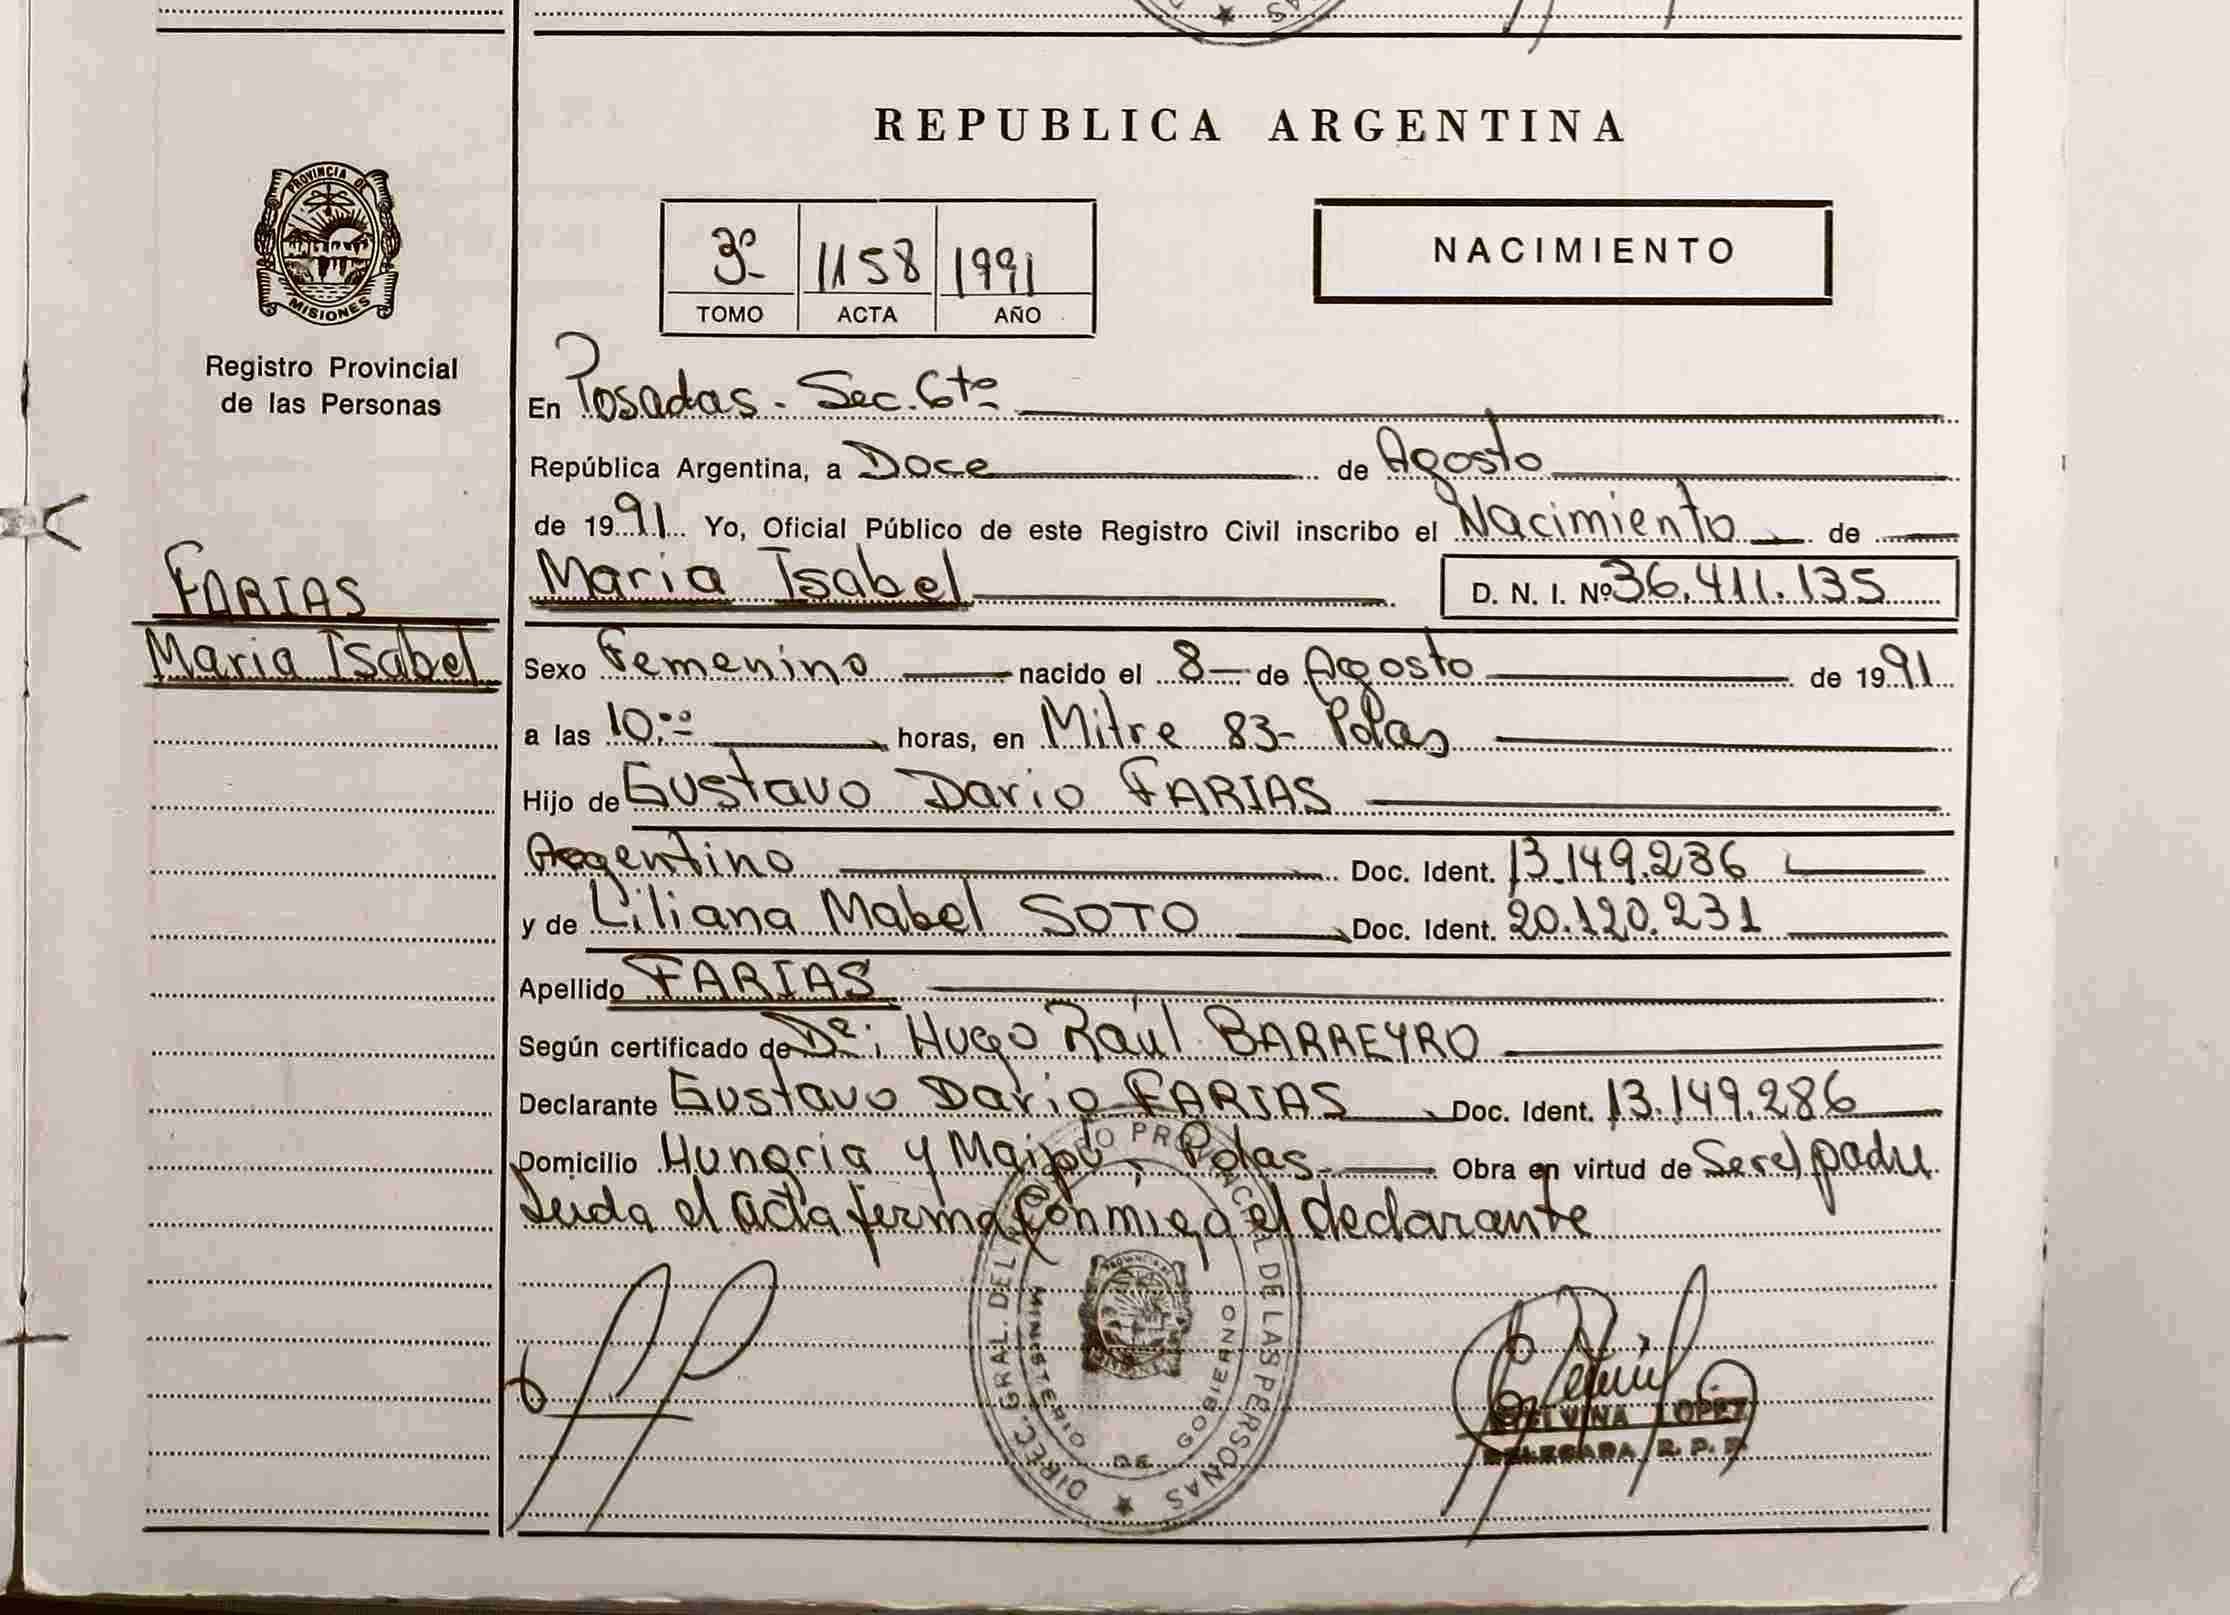 REPUBLICA ARGENTINA
PROVINCIA DE
MISIONES
Registro Provincial
de las Personas
3º 1158 1991
TOMO ACTA AÑO
NACIMIENTO
En Posadas - Sec. 6ta
República Argentina, a Doce de Agosto
de 1991 Yo, Oficial Público de este Registro Civil inscribo el Nacimiento de
Maria Isabel D. N. I. Nº 36.411.135
FARIAS
Maria Isabel
Sexo Femenino nacido el 8 de Agosto de 1991
a las 10:00 horas, en Mitre 83 - Pdas
Hijo de Gustavo Dario FARIAS
Argentino Doc. Ident. 13.149.286
y de Liliana Mabel SOTO Doc. Ident. 20.120.231
Apellido FARIAS
Según certificado de Dr: Hugo Raúl BARREYRO
Declarante Gustavo Dario FARIAS Doc. Ident. 13.149.286
Domicilio Hungria y Maipú, Pdas Obra en virtud de Ser el padre
Leida el acta firma conmigo el declarante
DIREC. GRAL. DEL PROVINCIAL DE LAS PERSONAS
MINISTERIO DE GOBIERNO
LOPEZ
DELEGADA R. P. P.